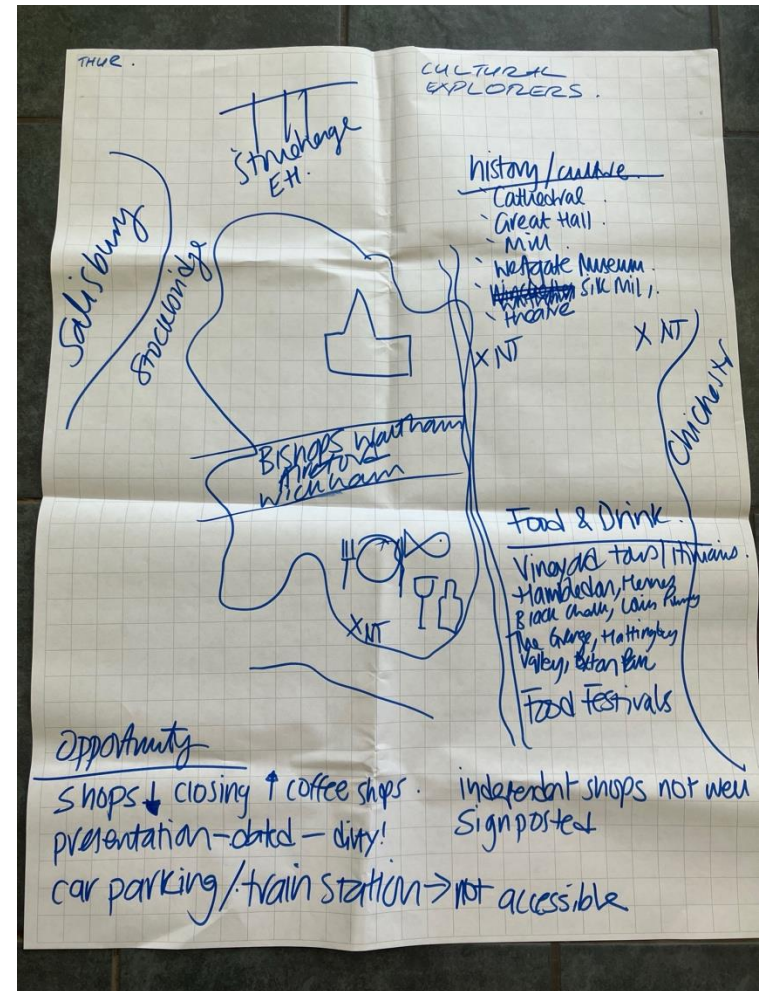 THUR.
CULTURAL
EXPLORERS.
Stonehenge
EH.
Salisbury
Stockbridge
history/culture
Cathedral
Great Hall
Mill
Westgate Museum
Silk Mill,
theatre
X NT
X NT
Chichester
Bishops Waltham
Alresford
Wickham
X NT
Food & Drink.
Vineyard tours/itineraries.
Hambledon,
Black Chalk, Louis Pommery
The Grange, Hattingley
Valley, Exton Park
Food Festivals
Opportunity
Shops ↓ closing ↑ coffee shops.
presentation - dated - dirty!
car parking/train station → not accessible
independent shops not well
Signposted